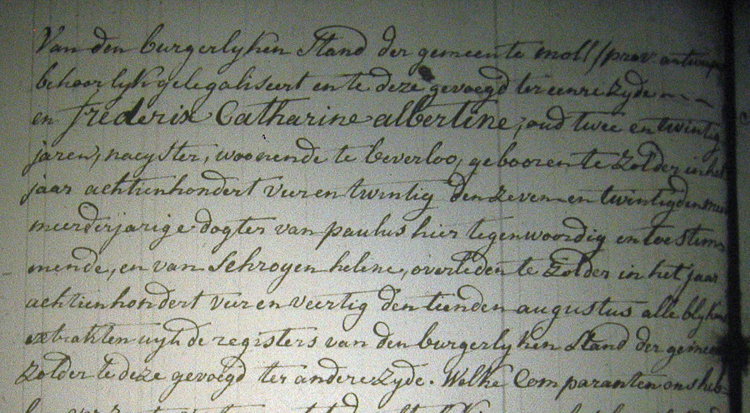 Van den burgerlyken Stand der gemeente moll /prov: antwerpen
behoorlyk gelegaliseert en te deze gevoegd ter eenre zyde ~ ~ ~
en frederix Catharine albertine, oud twee en twintig
jaren, nayster, woonende te beverloo, gebooren te Zolder in het
jaar achtienhondert vier en twintig den zeven en twintigden mei
meerderjarige dogter van paulus hier tegenwoordig en toestem
mende, en van Schroyen helene, overleden te Zolder in het jaar
achtienhondert vier en veertig den tienden augustus alle blykens
extrakten uyt de registers van den burgerlyken Stand der gemeente
Zolder te deze gevoegd ter andere zyde. Welke Comparanten ons heb